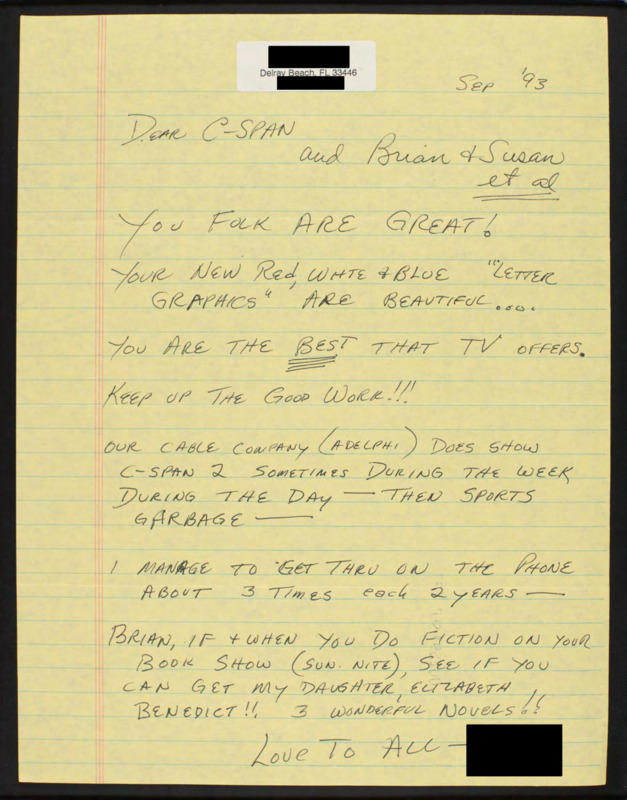 Delray Beach, FL 33446
Sep '93
Dear C-SPAN
and Brian & Susan
et al
You Folk Are Great!
Your New Red, White & Blue "Letter
Graphics" Are Beautiful....
You Are The Best That TV Offers.
Keep Up The Good Work!!!
Our Cable Company (Adelphi) Does Show
C-SPAN 2 Sometimes During The Week
During The Day — Then Sports
Garbage —
I Manage To Get Thru On The Phone
About 3 Times each 2 years —
Brian, If & When You Do Fiction On Your
Book Show (Sun. Nite), See If You
Can Get My Daughter, Elizabeth
Benedict!! 3 Wonderful Novels!!
Love To All —